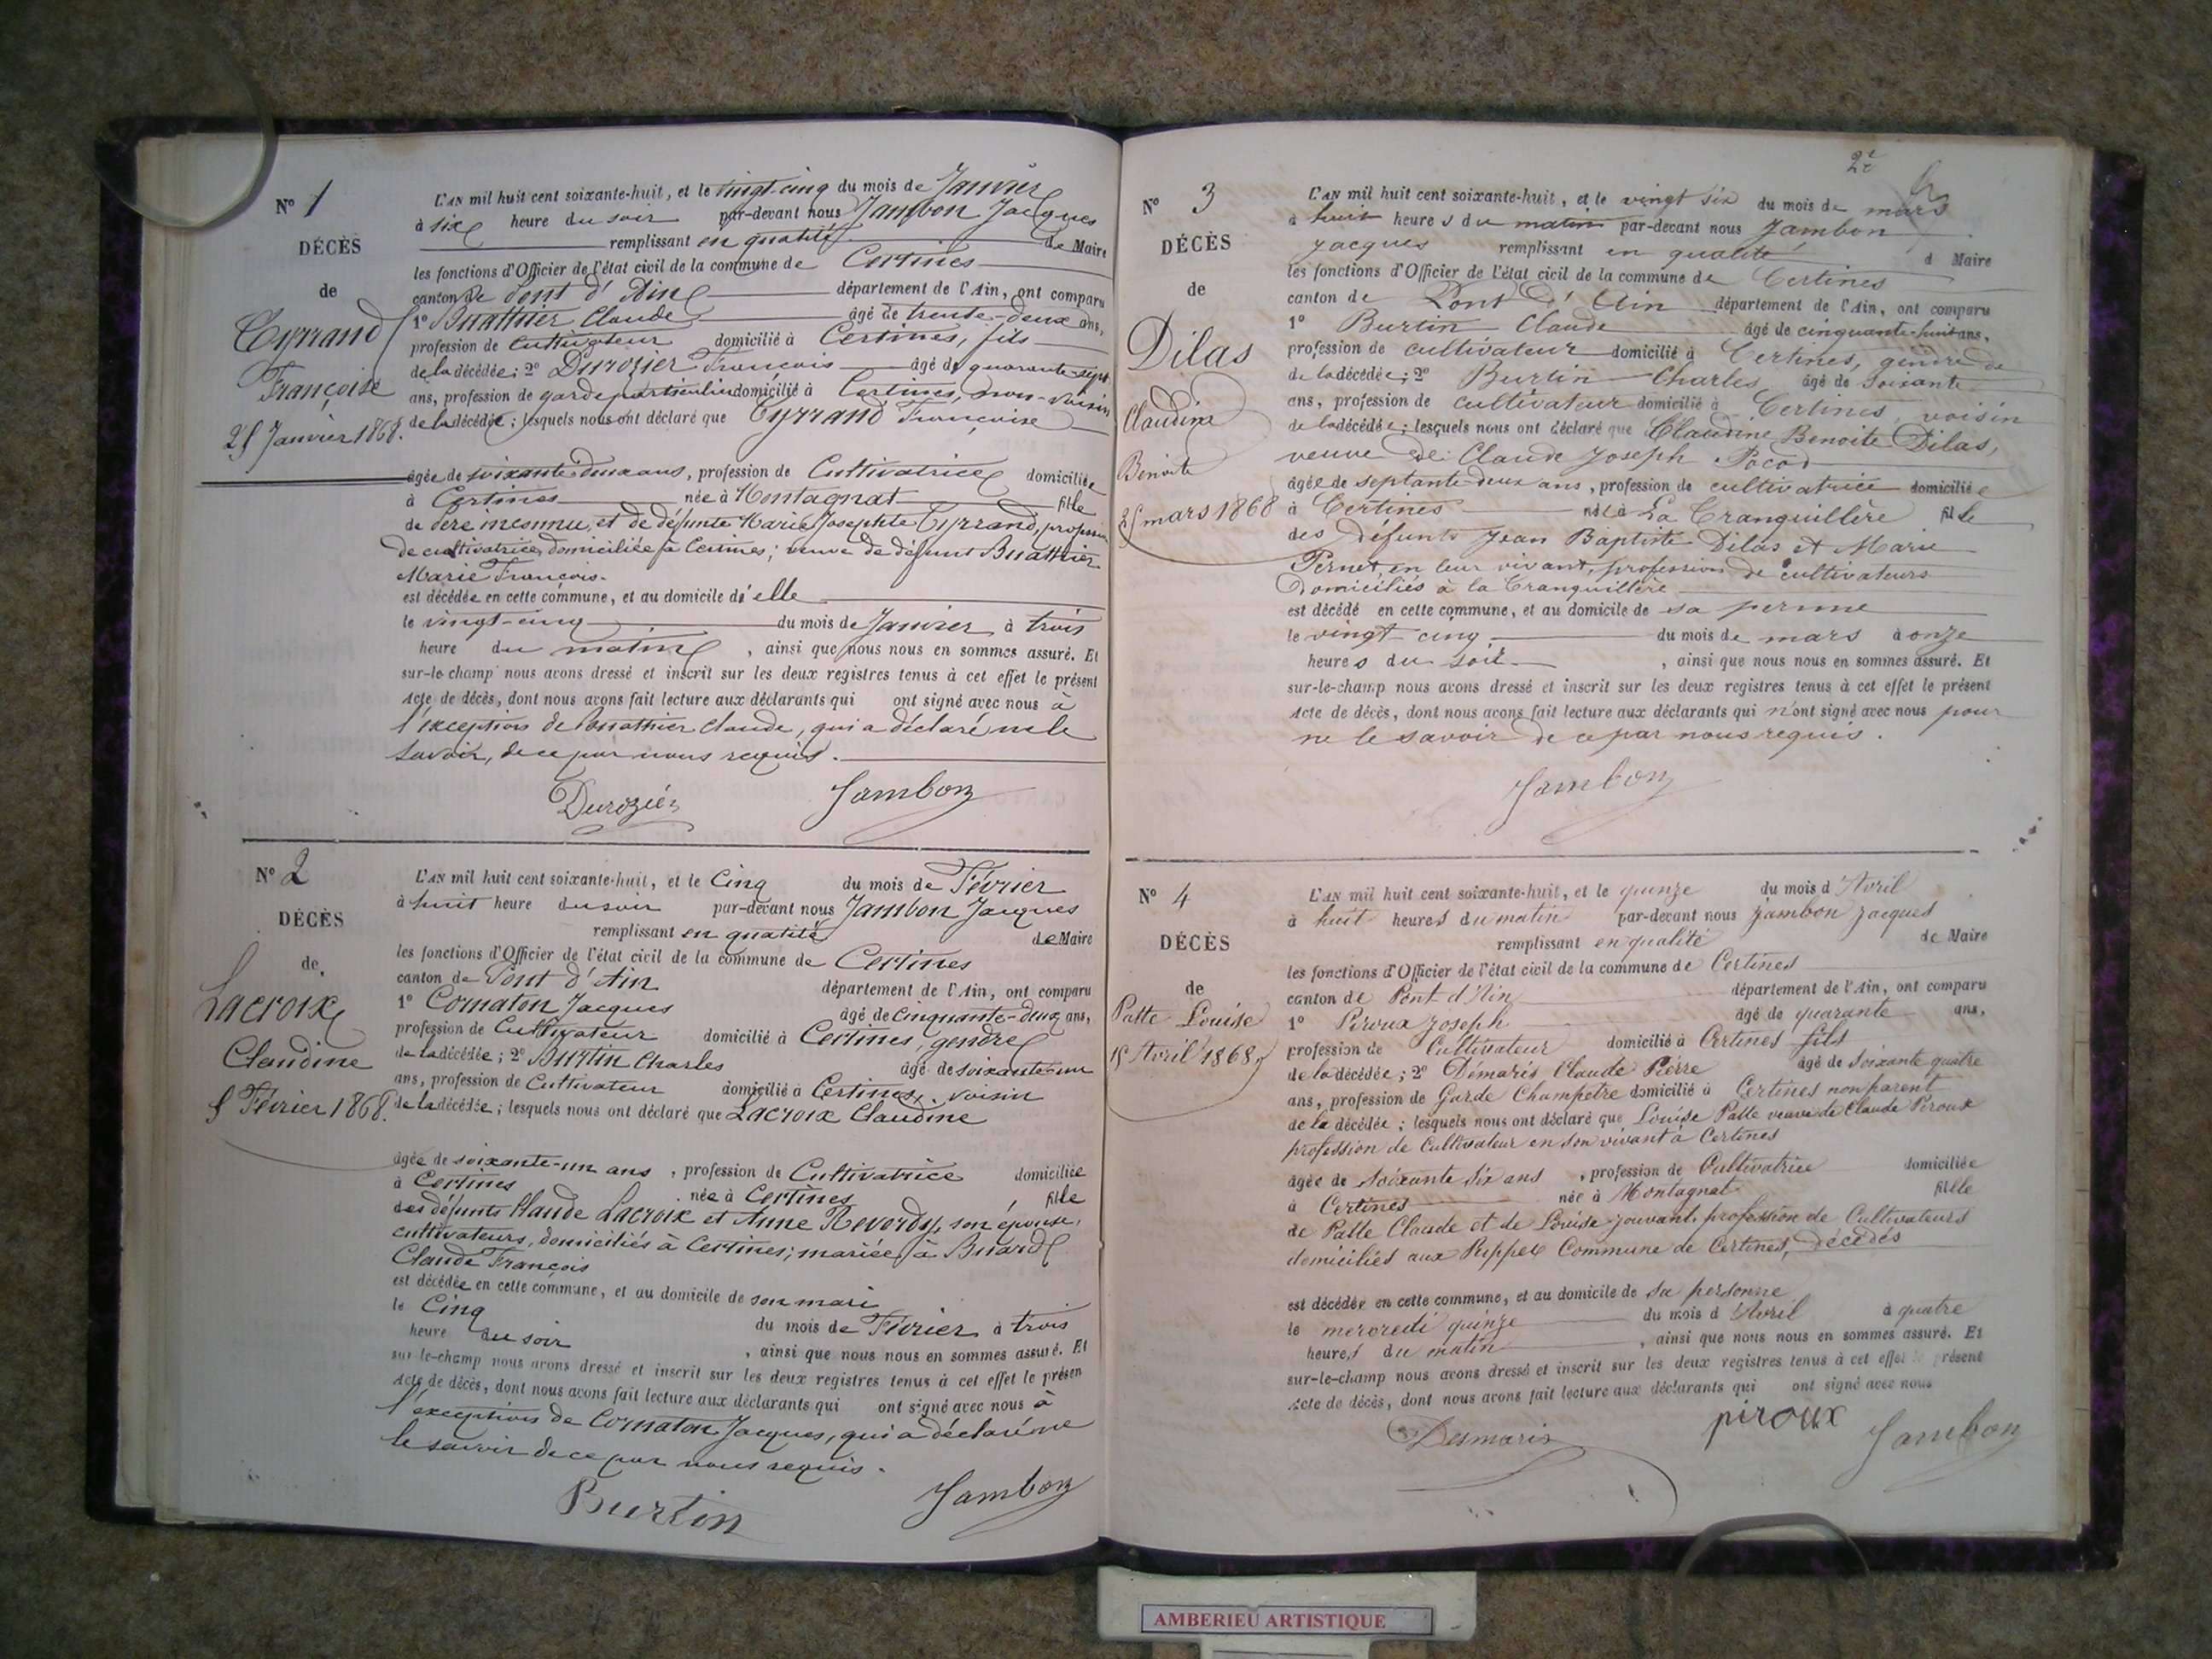 N° 1
DÉCÈS
de
Tyrrand
Françoise
25 Janvier 1868.
L'AN mil huit cent soixante-huit, et le vingt-cinq du mois de Janvier
à six heure du soir par-devant nous Jambon Jacques
remplissant en qualité de Maire
les fonctions d'Officier de l'état civil de la commune de Certines
canton de Pont d'Ain département de l'Ain, ont comparu
1° Buathier Claude âgé de trente-deux ans,
profession de cultivateur domicilié à Certines, fils
de la décédée; 2° Durozier François âgé de quarante-sept
ans, profession de garde particulier domicilié à Certines, non-voisin
de la décédée; lesquels nous ont déclaré que Tyrrand Françoise
âgée de soixante-deux ans, profession de Cultivatrice domiciliée
à Certines née à Montagnat fille
de père inconnu, et de défunte Marie Josephte Tyrrand, profession
de cultivatrice, domiciliée à Certines; veuve de défunt Buathier
Marie François.
est décédée en cette commune, et au domicile d'elle
le vingt-cinq du mois de Janvier à trois
heure du matin, ainsi que nous nous en sommes assuré. Et
sur-le-champ nous avons dressé et inscrit sur les deux registres tenus à cet effet le présent
acte de décès, dont nous avons fait lecture aux déclarants qui ont signé avec nous à
l'exception de Buathier Claude, qui a déclaré ne le
savoir, de ce par nous requis.
Durozier Jambon
N° 2
DÉCÈS
de
Lacroix
Claudine
5 Février 1868.
L'AN mil huit cent soixante-huit, et le Cinq du mois de Février
à huit heure du soir par-devant nous Jambon Jacques
remplissant en qualité de Maire
les fonctions d'Officier de l'état civil de la commune de Certines
canton de Pont d'Ain département de l'Ain, ont comparu
1° Cornaton Jacques âgé de cinquante-deux ans,
profession de Cultivateur domicilié à Certines, gendre
de la décédée; 2° Burtin Charles âgé de soixante-un
ans, profession de Cultivateur domicilié à Certines, voisin
de la décédée; lesquels nous ont déclaré que Lacroix Claudine
âgée de soixante-un ans, profession de Cultivatrice domiciliée
à Certines née à Certines fille
des défunts Claude Lacroix et Anne Revordy, son épouse,
cultivateurs, domiciliés à Certines; mariée à Buard
Claude François
est décédée en cette commune, et au domicile de son mari
le Cinq du mois de Février à trois
heure du soir, ainsi que nous nous en sommes assuré. Et
sur-le-champ nous avons dressé et inscrit sur les deux registres tenus à cet effet le présen
acte de décès, dont nous avons fait lecture aux déclarants qui ont signé avec nous à
l'exception de Cornaton Jacques, qui a déclaré ne
le savoir de ce par nous requis.
Burtin Jambon
2e
N° 3
DÉCÈS
de
Dilas
Claudine
Benoite
25 mars 1868
L'AN mil huit cent soixante-huit, et le vingt six du mois de mars
à huit heures du matin par-devant nous Jambon
Jacques remplissant en qualité d Maire
les fonctions d'Officier de l'état civil de la commune de Certines
canton de Pont d'Ain département de l'Ain, ont comparu
1° Burtin Claude âgé de cinquante-huit ans,
profession de cultivateur domicilié à Certines, gendre de
de la décédée; 2° Burtin Charles âgé de soixante
ans, profession de cultivateur domicilié à Certines, voisin
de la décédée; lesquels nous ont déclaré que Claudine Benoite Dilas,
veuve de Claude Joseph Pocod
âgée de septante-deux ans, profession de cultivatrice domiciliée
à Certines née à La Tranquillère fille
des défunts Jean Baptiste Dilas et Marie
Pernet en leur vivant, profession de cultivateurs
domiciliés à la Tranquillère
est décédé en cette commune, et au domicile de sa personne
le vingt-cinq du mois de mars à onze
heures du soir, ainsi que nous nous en sommes assuré. Et
sur-le-champ nous avons dressé et inscrit sur les deux registres tenus à cet effet le présent
acte de décès, dont nous avons fait lecture aux déclarants qui n'ont signé avec nous pour
ne le savoir de ce par nous requis.
Jambon
N° 4
DÉCÈS
de
Patte Louise
15 Avril 1868
L'AN mil huit cent soixante-huit, et le quinze du mois d'Avril
à huit heures du matin par-devant nous Jambon Jacques
remplissant en qualité de Maire
les fonctions d'Officier de l'état civil de la commune de Certines
canton de Pont-d'Ain département de l'Ain, ont comparu
1° Piroux Joseph âgé de quarante ans,
profession de Cultivateur domicilié à Certines fils
de la décédée; 2° Démaris Claude Pierre âgé de soixante quatre
ans, profession de Garde Champetre domicilié à Certines non parent
de la décédée; lesquels nous ont déclaré que Louise Patte veuve de Claude Piroux
profession de Cultivateur en son vivant à Certines
âgée de soixante six ans, profession de Cultivatrice domiciliée
à Certines née à Montagnat fille
de Patte Claude et de Louise Jouvant, profession de Cultivateurs
domiciliés aux Rippes Commune de Certines, décédés
est décédée en cette commune, et au domicile de sa personne
le mercredi quinze du mois d'Avril à quatre
heures du matin, ainsi que nous nous en sommes assuré. Et
sur-le-champ nous avons dressé et inscrit sur les deux registres tenus à cet effet le présent
acte de décès, dont nous avons fait lecture aux déclarants qui ont signé avec nous
Desmaris piroux Jambon
AMBERIEU ARTISTIQUE